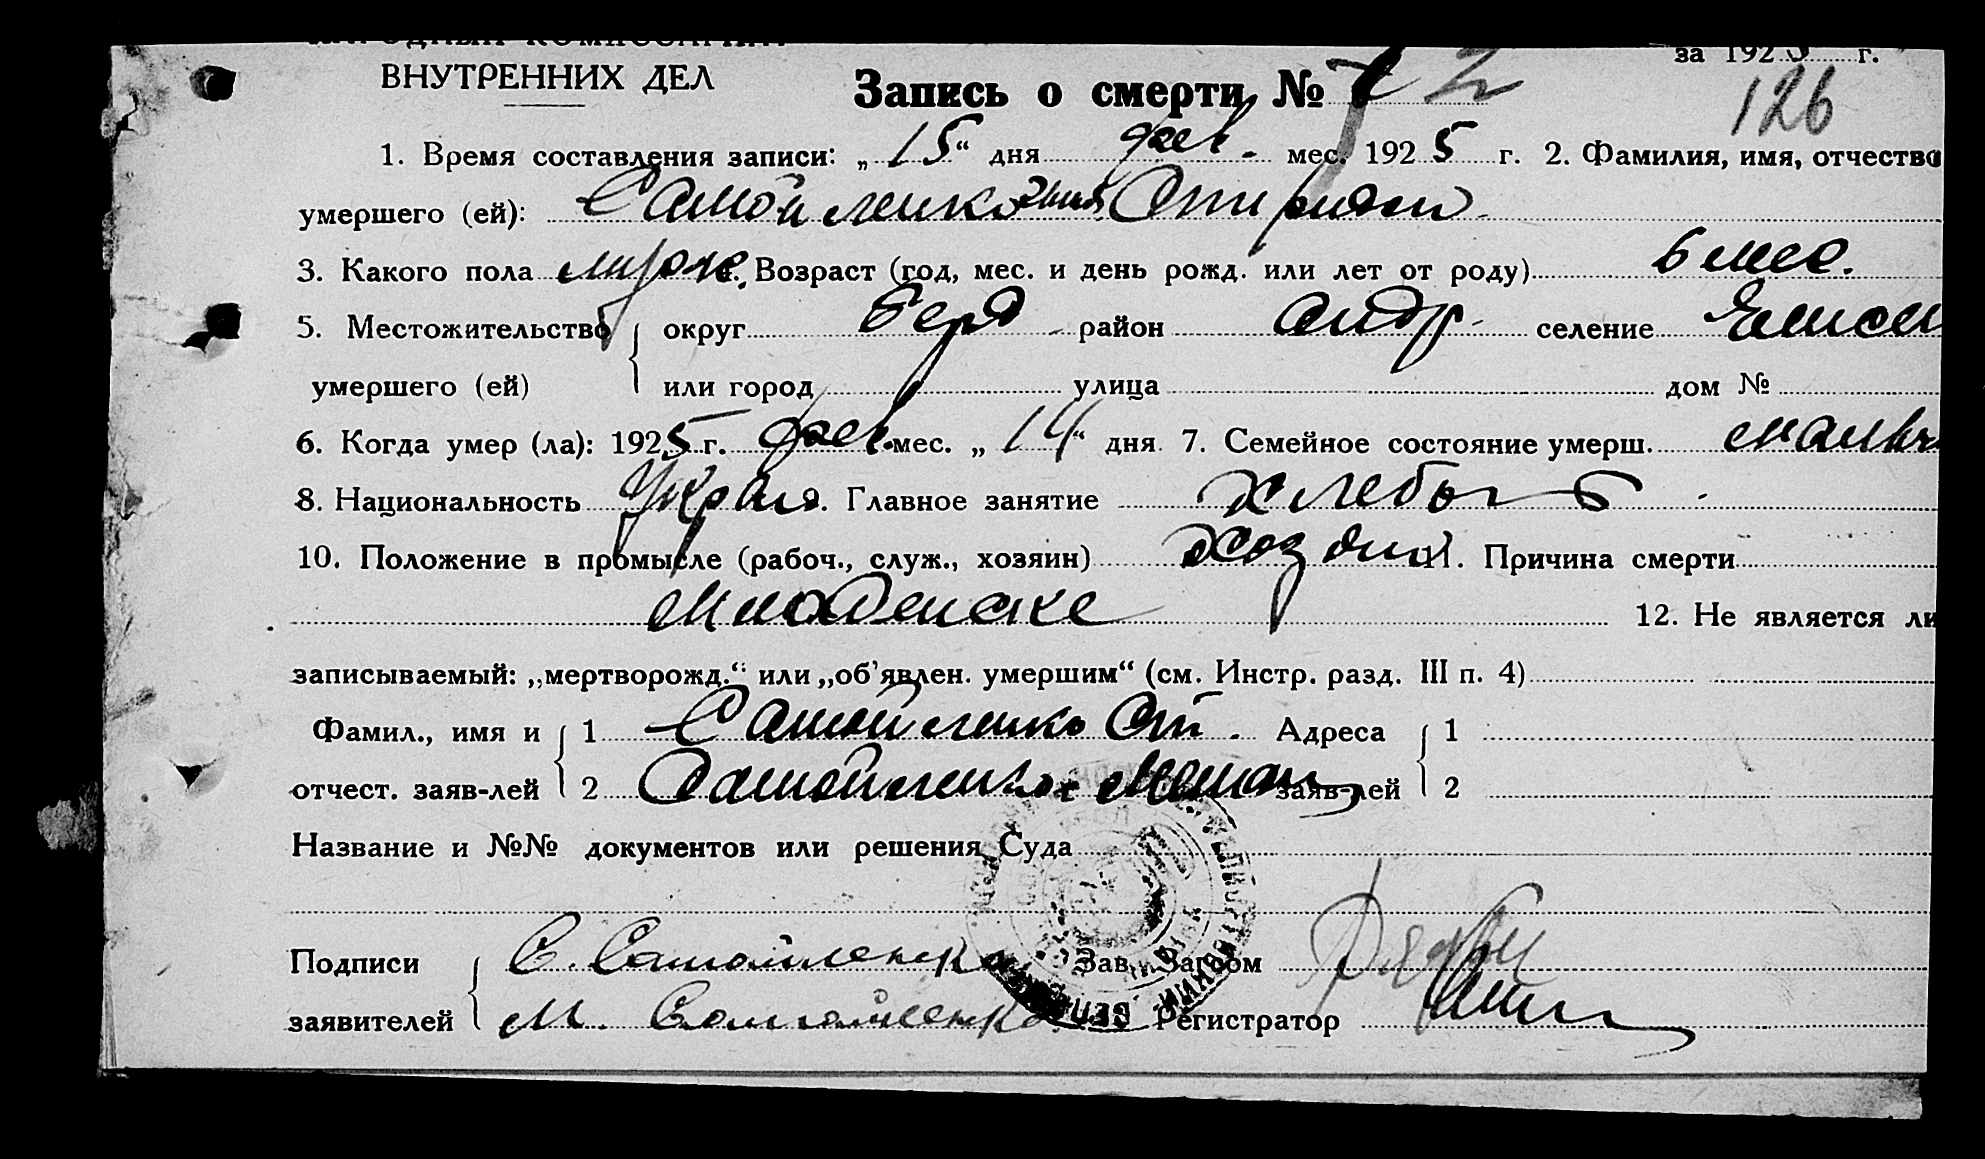 НАРОДНЫЙ КОМИССАРИАТ
ВНУТРЕННИХ ДЕЛ
за 1925 г.
Запись о смерти №
126
1. Время составления записи: „15“ дня фев. мес. 1925 г. 2. Фамилия, имя, отчество
умершего (ей): Самойленко
3. Какого пола муж. Возраст (год, мес. и день рожд. или лет от роду) 6 мес.
5. Местожительство округ Берд район Андр. селение
умершего (ей) или город улица дом №
6. Когда умер (ла): 1925 г. фев. мес. „14“ дня. 7. Семейное состояние умерш. мальч
8. Национальность Украин. Главное занятие хлебоп
10. Положение в промысле (рабоч., служ., хозяин) 11. Причина смерти
младенске 12. Не является ли
записываемый: „мертворожд.“ или „об’явлен. умершим“ (см. Инстр. разд. III п. 4)
Фамил., имя и 1 Самойленко Сп. Адреса 1
отчест. заяв-лей 2 Самойленко заяв-лей 2
Название и №№ документов или решения Суда
Подписи С. Самойленко Зав. Загсом
заявителей М. Самойленко Регистратор